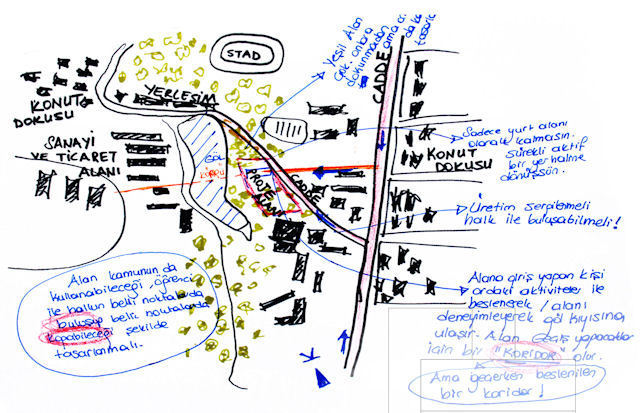 STAD
Yeşil Alan
Çok onlara
dokunmadan
ama
da
tasarla
CADDE
YERLEŞİM
KONUT
DOKUSU
SANAYİ
VE TİCARET
ALANI
GÖL
KÖPRÜ
PROJE
ALANI
CADDE
Sadece yurt alanı
olarak kalmasın.
Sürekli aktif
bir yer haline
dönüşsün.
KONUT
DOKUSU
Üretim sergilemeli
halk ile buluşabilmeli!
Alan kamunun da
kullanabileceği, öğrenci
ile halkın belli noktalarda
buluşup belli noktalarda
kopabileceği şekilde
tasarlanmalı.
Alana giriş yapan kişi
ordaki aktiviteler ile
beslenerek / alanı
deneyimleyerek göl kıyısına
ulaşır. Alan geçiş yapacaklar
için bir "KORİDOR" olur.
Ama geçerken beslenilen
bir koridor!
K